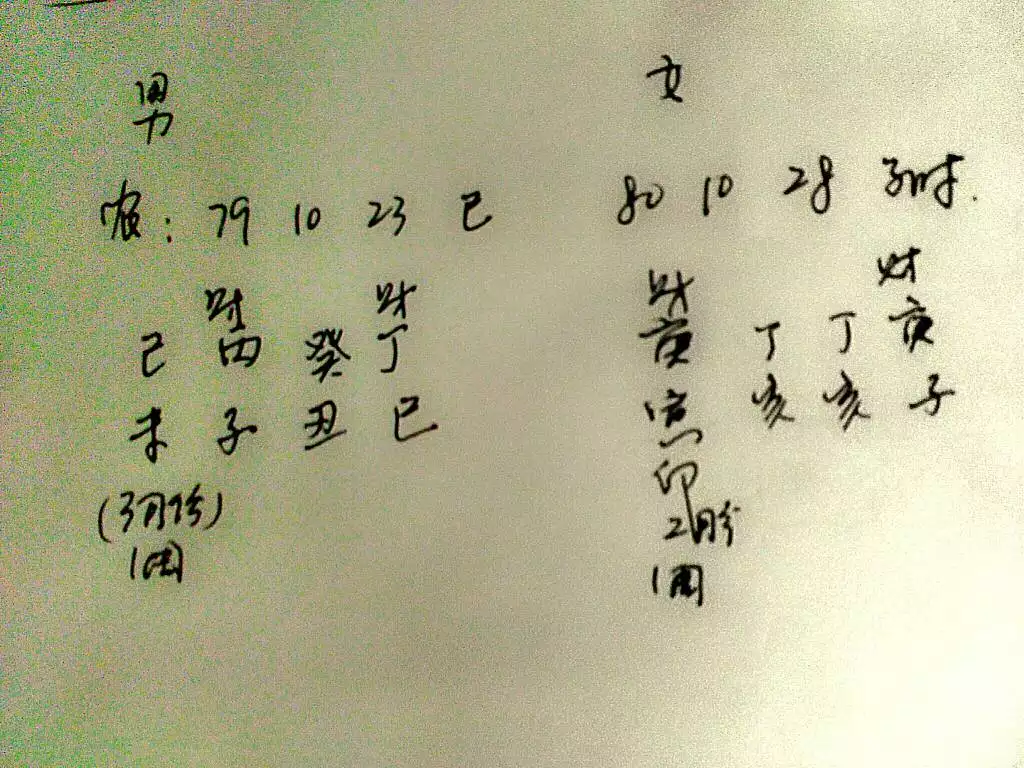 男
农：79 10 23 巳
财 财
己 丙 癸 丁
未 子 丑 巳
(3月份)
1周
女
80 10 28 子时.
财 财
庚 丁 丁 庚
亥 亥 子
印
2月份
1周